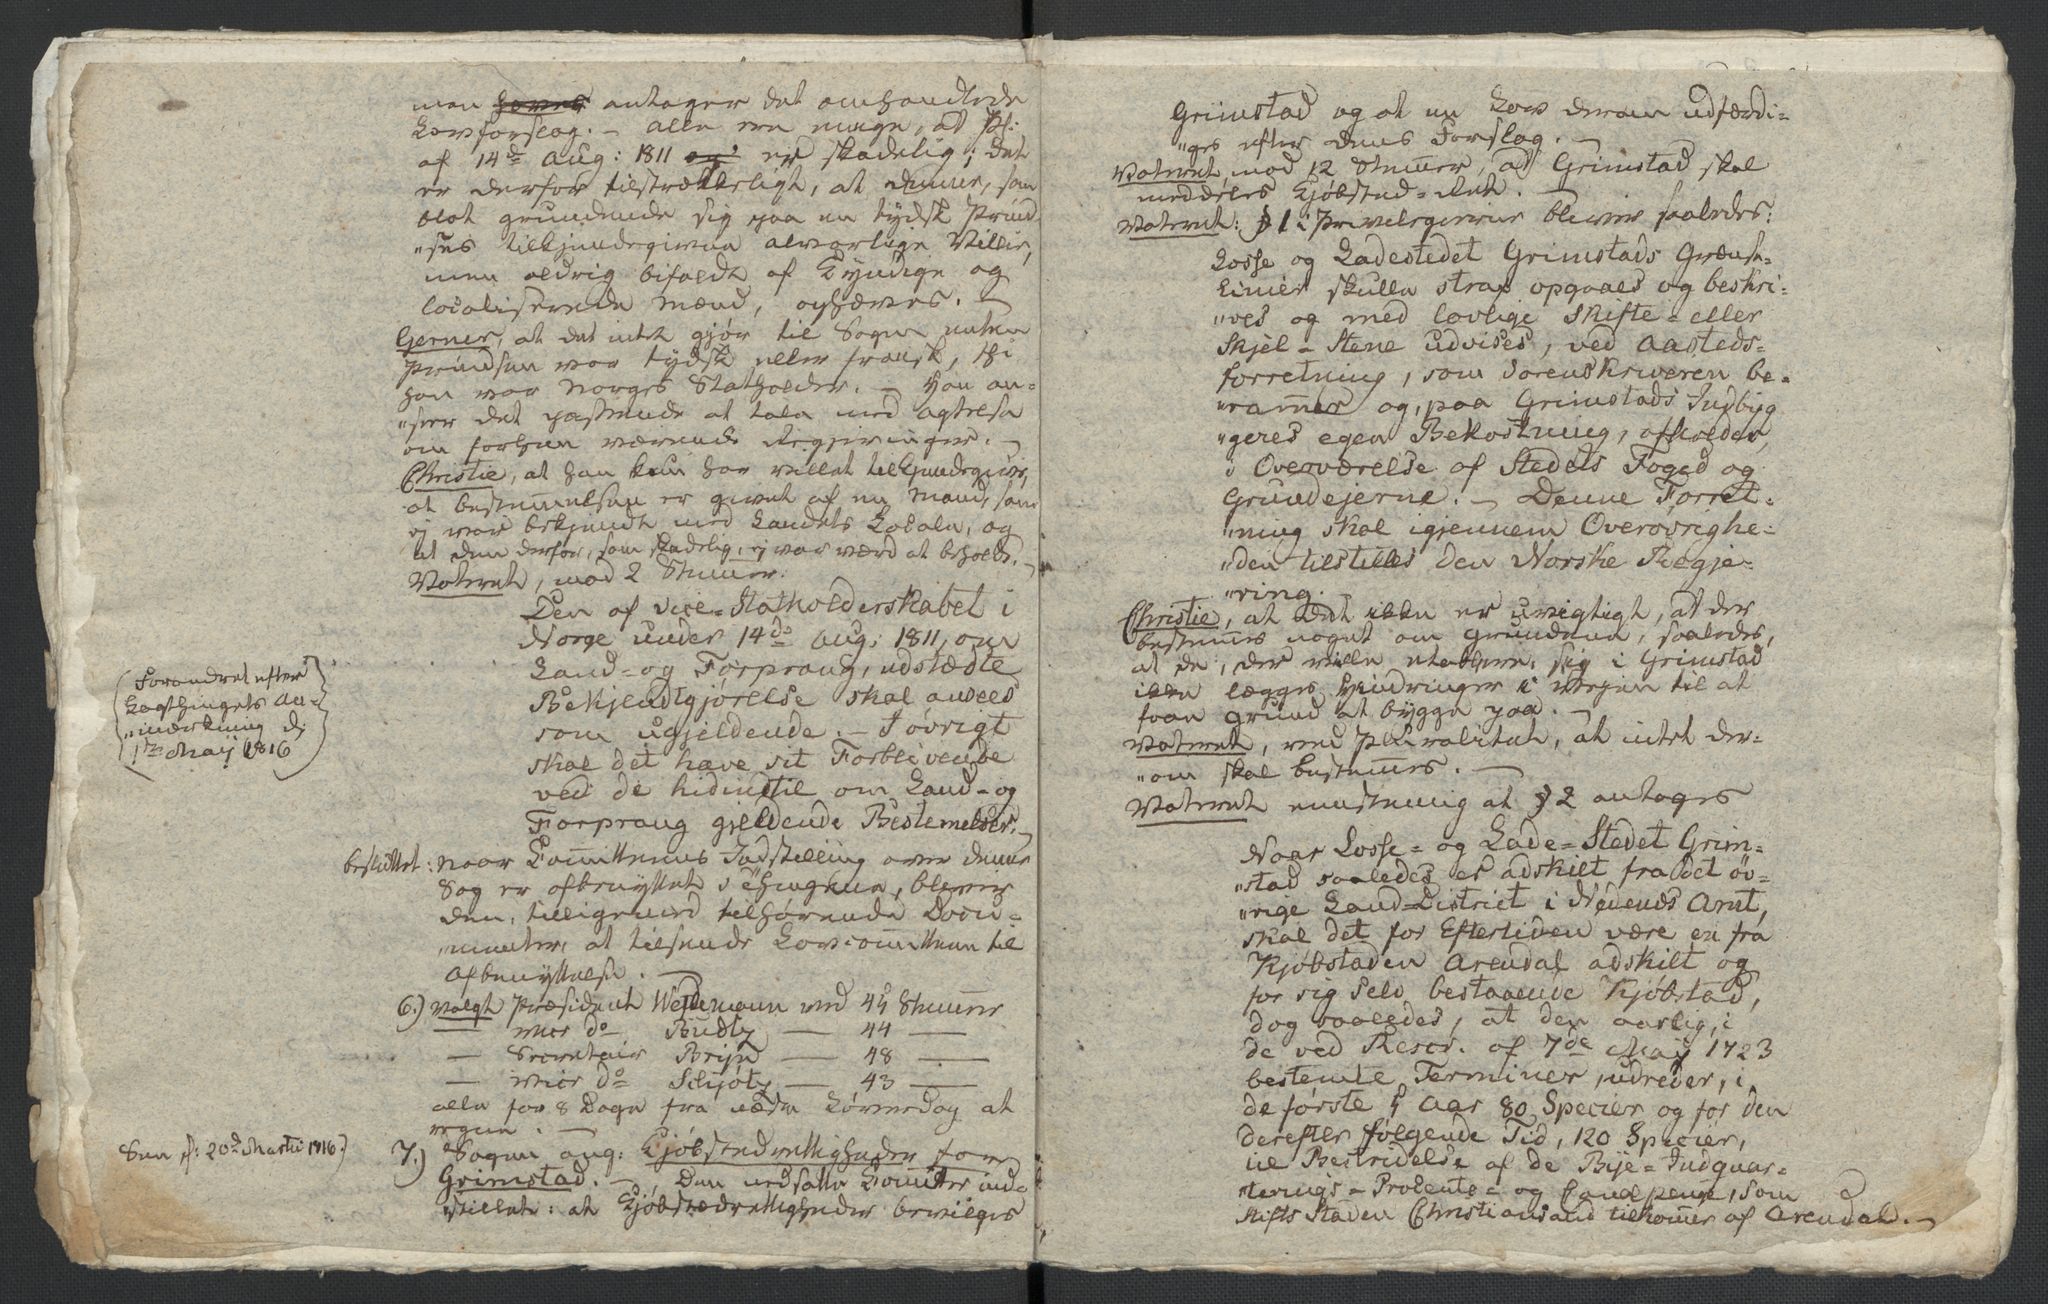 men ~~haves~~ antager det omhandlede
Lovforslag. — Alle ere enige, at Pl:
af 14de Aug: 1811 ~~og~~ er skadelig; det
er derfor tilstrækkeligt, at denne, som
blot grundende sig paa en tydsk Prind-
"ses tilkjendegivne alvorlige Villie,
men aldrig bifaldt af Kyndige og
localiserede Mænd, ophæves. —
Gerner, at det intet gjør til Sagen enten
Prindsen var tydsk eller fransk, thi
han var Norges Statholder. — Han an-
"seer det passende at tale med Agtelse
om forhen værende Regjeringer. —
Christie, at han kun har villet tilkjendegive,
at bestemmelsen er givet af en Mand, som
ej var bekjendt med Landets Locale, og
at den derfor, som skadelig, ej var værd at beholde. —
Voteret, mod 2 Stemmer:
Den af Vice-Statholderskabet i
Norge under 14de Aug: 1811, om
Land- og Forprang, udstædte
Bekjendtgjørelse skal ansees
som ugjeldende. — I øvrigt
skal det have sit Forblivende
ved de hidindtil om Land- og
Forprang gjeldende Bestemelser. —
(Forandret efter
Lagthingets An-
"mærkning d:
1ste Maij 1816)
besluttet: naar Comitteens Indstilling over denne
Sag er afbenyttet i Thinget, bliver
den, tilligemed tilhørende Docu-
"menter, at tilsende Lovcomitteen til
Afbenyttelse. —
6.) Valgt Præsident Weidemann med 45 Stemmer
— vice do Budtz — 44 —
— Secretair Brijn — 48 —
— vice do Schjøtz — 43 —
alle for 8 Dage fra næste Løverdag at
regne. —
See p: 20de Martii 1816.)
7.) Sagen ang: Kjøbstedrettigheder for
Grimstad. — Den nedsatte Comitee ind-
"stillet: at Kjøbstædrettigheder bevilges
Grimstad og at en Lov derom udfærdi-
"ges efter dens Forslag. —
Voteret, mod 12 Stemmer, at Grimstad skal
meddeles Kjøbsted-Ret. —
Voteret: § 1 i Privilegierne bliver saaledes:
Losse og Ladestedet Grimstads Grændse-
Linier skulle strax opgaaes og beskri-
"ves og med lovlige Skifte- eller
Skjel-Stene udvises, ved Aasteds-
forretning, som Sorenskriveren be-
"rammer og, paa Grimstads Indbyg-
"geres egen Bekostning, afholder,
i Overværelse af Stedets Foged og
Grundejerne. — Denne Forret-
"ning skal igjennem Overøvrighe-
"den tilstilles den Norske Regje-
"ring. —
Christie, at det ikke er urigtigt, at der
bestemmes noget om Grundene, saaledes,
at de, der ville etablere sig i Grimstad
ikke lægges Hindringer i Vejen til at
faae Grund at bygge paa. —
Voteret, ved Pluralitet, at intet der-
"om skal bestemmes. —
Voteret eenstemig at § 2 antages
Naar Losse- og Lade-Stedet Grim-
"stad saaledes er adskilt fra det øv-
"rige Land-District i Nedenes Amt,
skal det for Eftertiden være en fra
Kjøbstaden Arendal adskilt og
for sig selv bestaaende Kjøbstad,
dog saaledes, at den aarlig, i
de ved Rescr. af 7de Maij 1723
bestemte Terminer, udreder, i
de første 5 Aar 80 Specier og for den
derefter følgende Tid, 120 Specier,
til Bestridelse af de Bye-Indqvar-
"terings-Procents- og Penge, som
Stifts Staden Christiansand tilkommer af Arendal. —